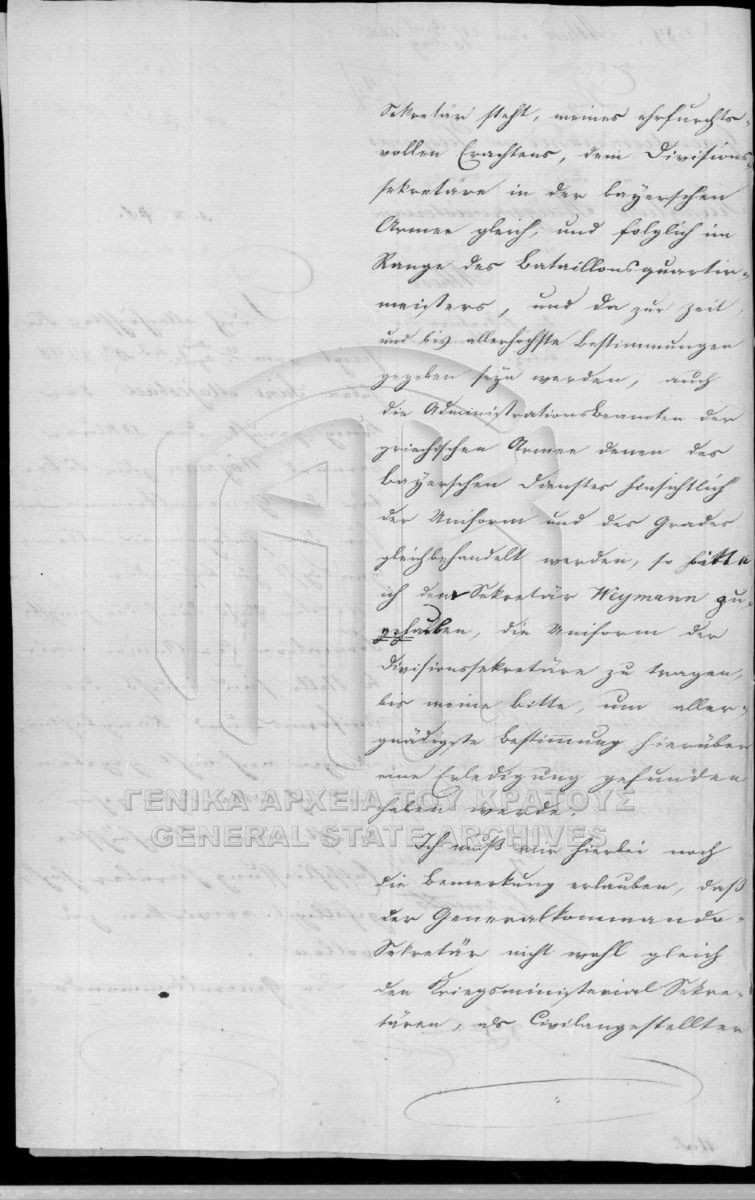 Sekretär steht, meines ehrfurchts-
vollen Erachtens, dem Divisions-
sekretäre in der bayerschen
Armee gleich, und folglich im
Range des Bataillonsquartier-
meisters, und da zur Zeit,
und bis allerhöchste Bestimmungen
gegeben seyn werden, auch
die Administrationsbeamten der
griechischen Armee denen des
bayerschen Dienstes hinsichtlich
der Uniform und des Grades
gleichbehandelt werden, so bitte
ich dem Sekretär Weymann zu
die Uniform der
Divisionssekretäre zu tragen,
bis meine Bitte, um aller-
gnädigste Bestimmung hierüber
eine Erledigung gefunden
haben werde.
ΓΕΝΙΚΑ ΑΡΧΕΙΑ ΤΟΥ ΚΡΑΤΟΥΣ
GENERAL STATE ARCHIVES
Ich muß nur hierbei noch
die Bemerkung erlauben, daß
der Generalkommando-
Sekretär nicht wohl gleich
den Kriegsministerial Sekre-
tären, als Civilangestellter